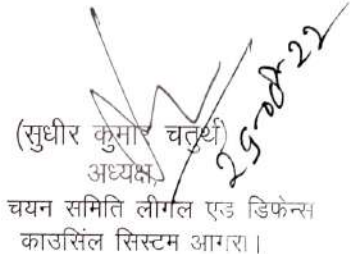 (सुधीर कुमार चतुर्थ)
अध्यक्ष,
चयन समिति लीगल एड डिफेन्स
काउसिंल सिस्टम आगरा।